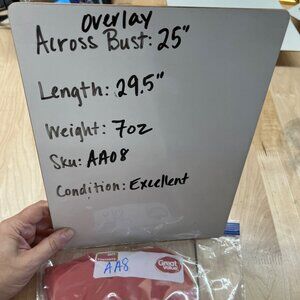 overlay
Across Bust: 25"
Length: 29.5"
Weight: 7oz
Sku: AA08
Condition: Excellent
AA8
Great Value